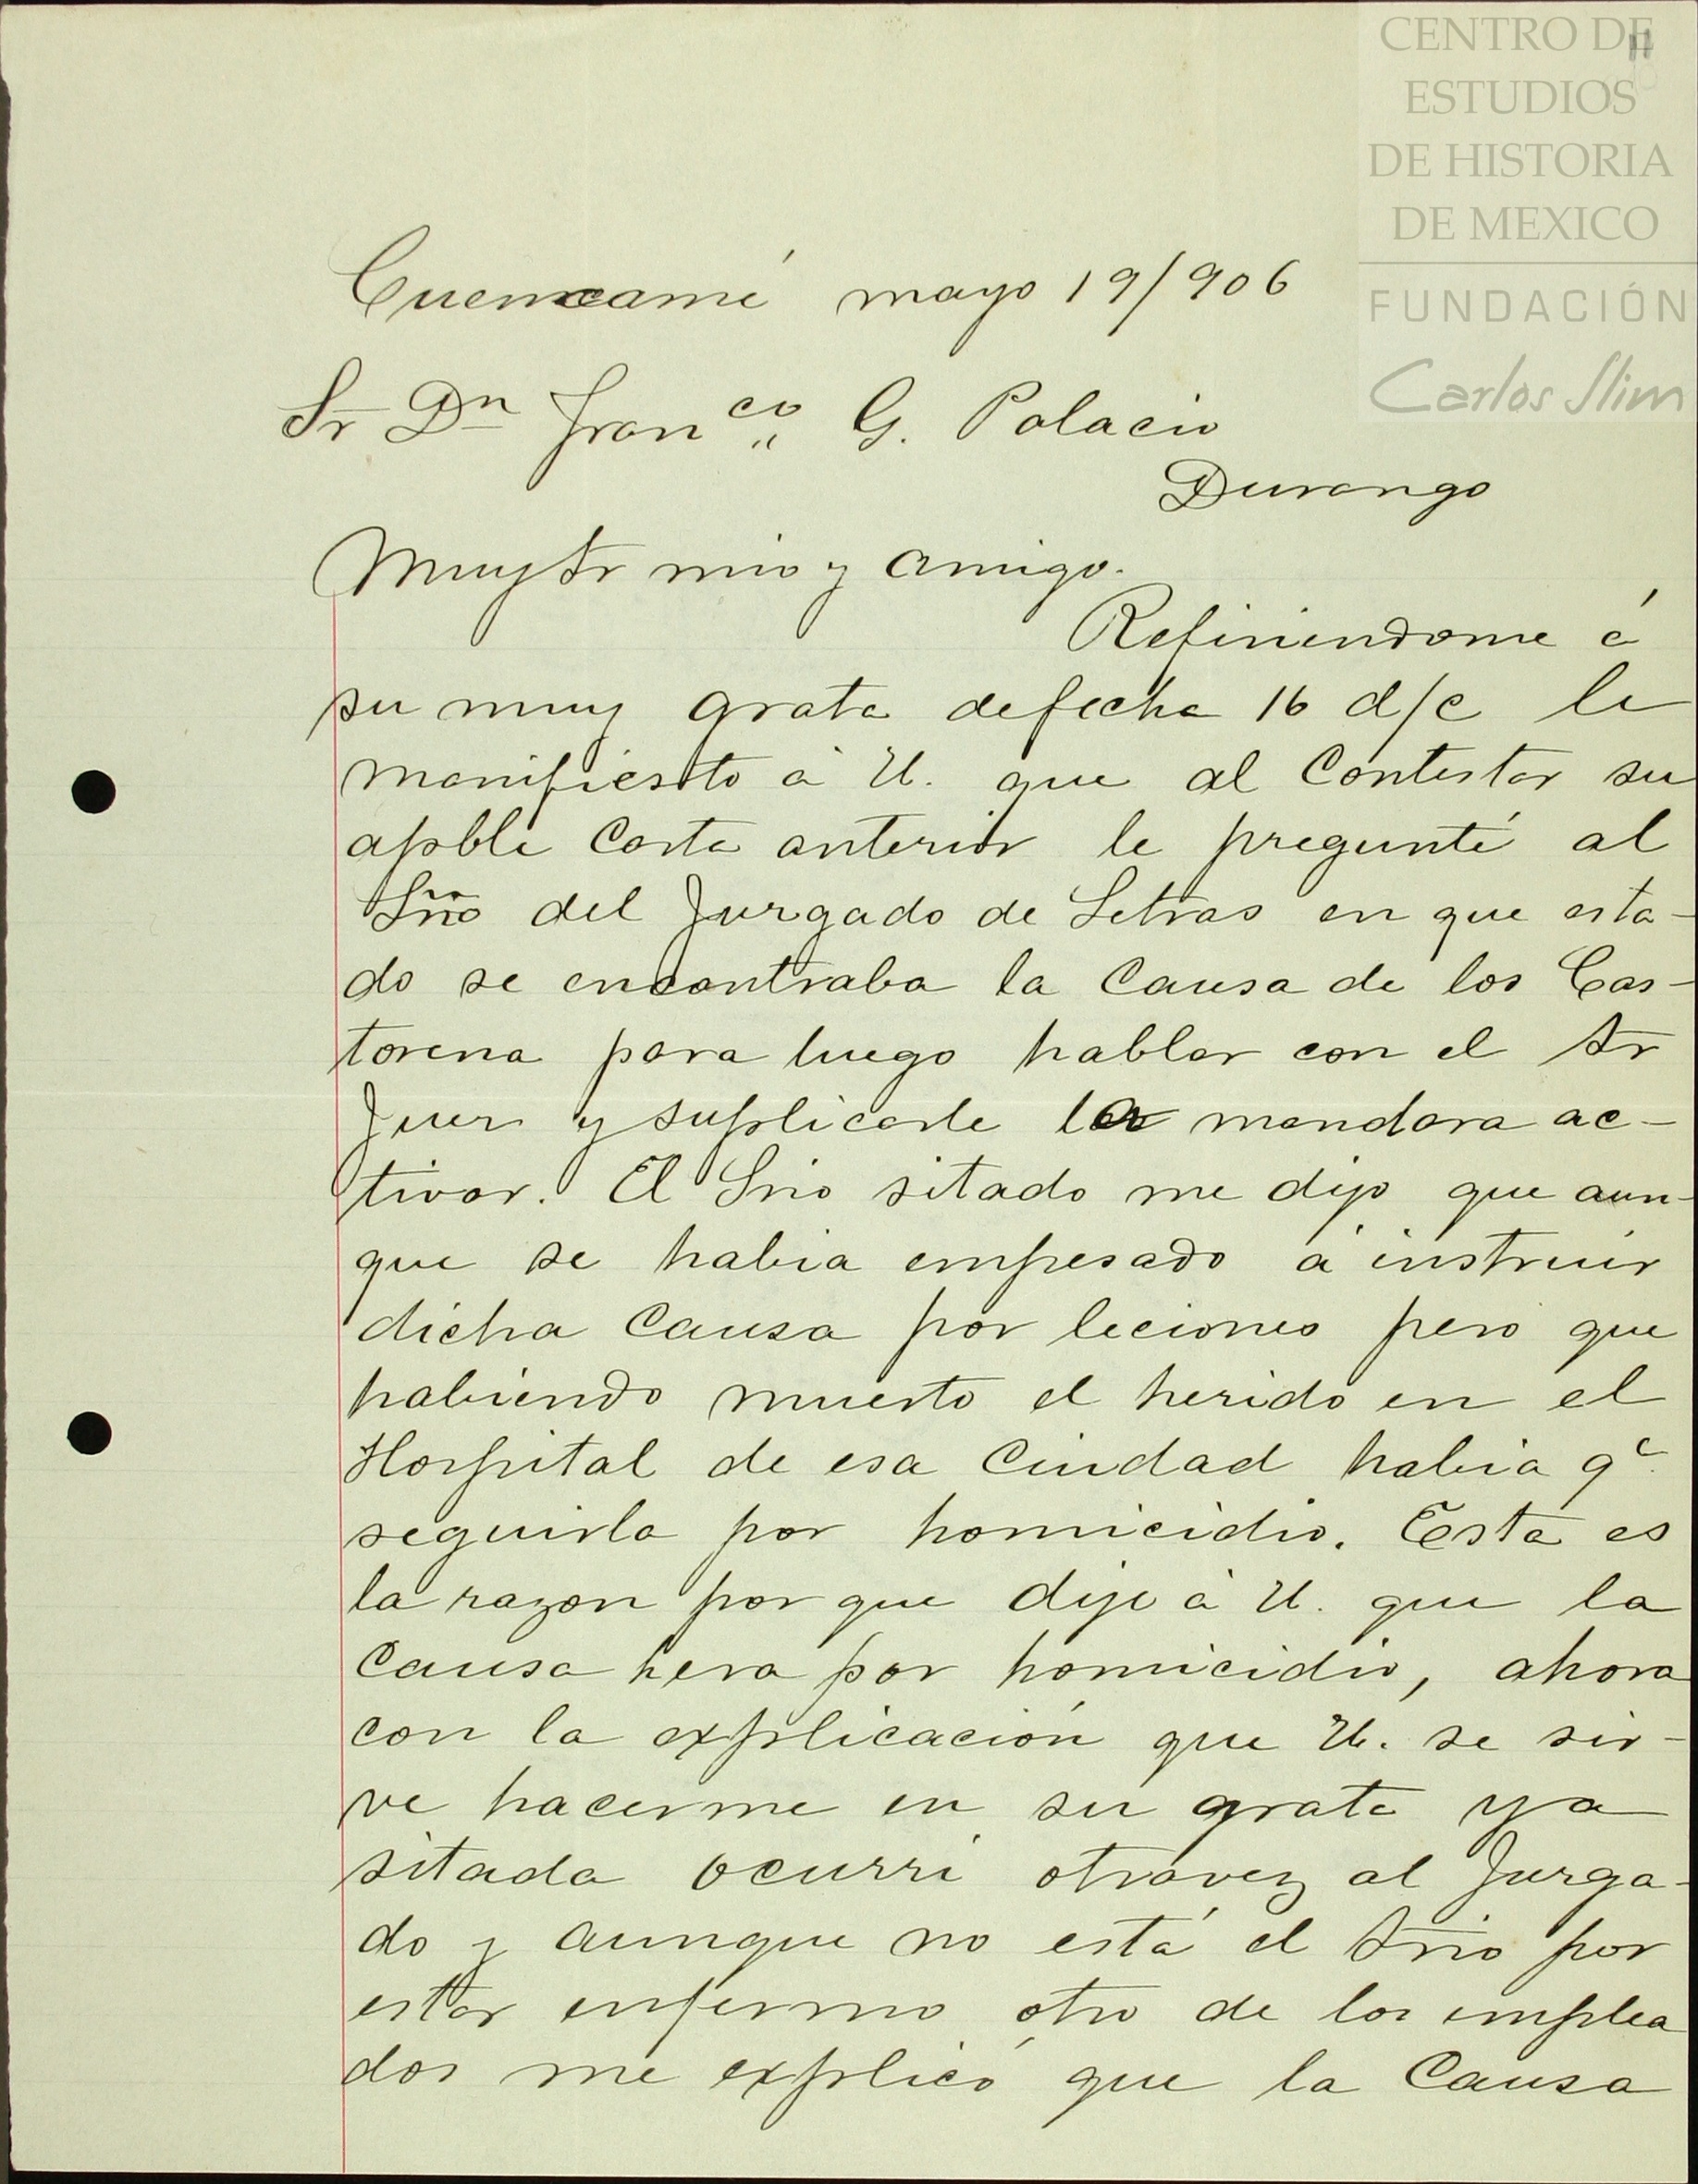 CENTRO DE
ESTUDIOS
DE HISTORIA
DE MEXICO
FUNDACIÓN
Carlos Slim
11
Cuencamé mayo 19/906
Sr Dn Franco G. Palacio
Durango
Muy Sr mio y amigo.
Refiriendome á
su muy grata de fecha 16 d/c le
manifiesto á U. que al Contestar su
apble Carta anterior le pregunté al
Srio del Jurgado de Letras en que esta-
do se encontraba la Causa de los Cas-
torena para luego hablar con el Sr
Juer y suplicarle la mandara ac-
tivar. El Srio sitado me dijo que aun-
que se habia empesado á instruir
dicha Causa por leciones pero que
habiendo muerto el herido en el
Hospital de esa Ciudad habia qe
seguirla por homicidio. Esta es
la razon por que dije á U. que la
Causa hera por homicidio, ahora
con la explicación que U. se sir-
ve hacerme en su grata ya
sitada ocurrí otravez al Jurga-
do y aunque no está el Srio por
estar enfermo otro de los emplea
dos me explicó que la Causa